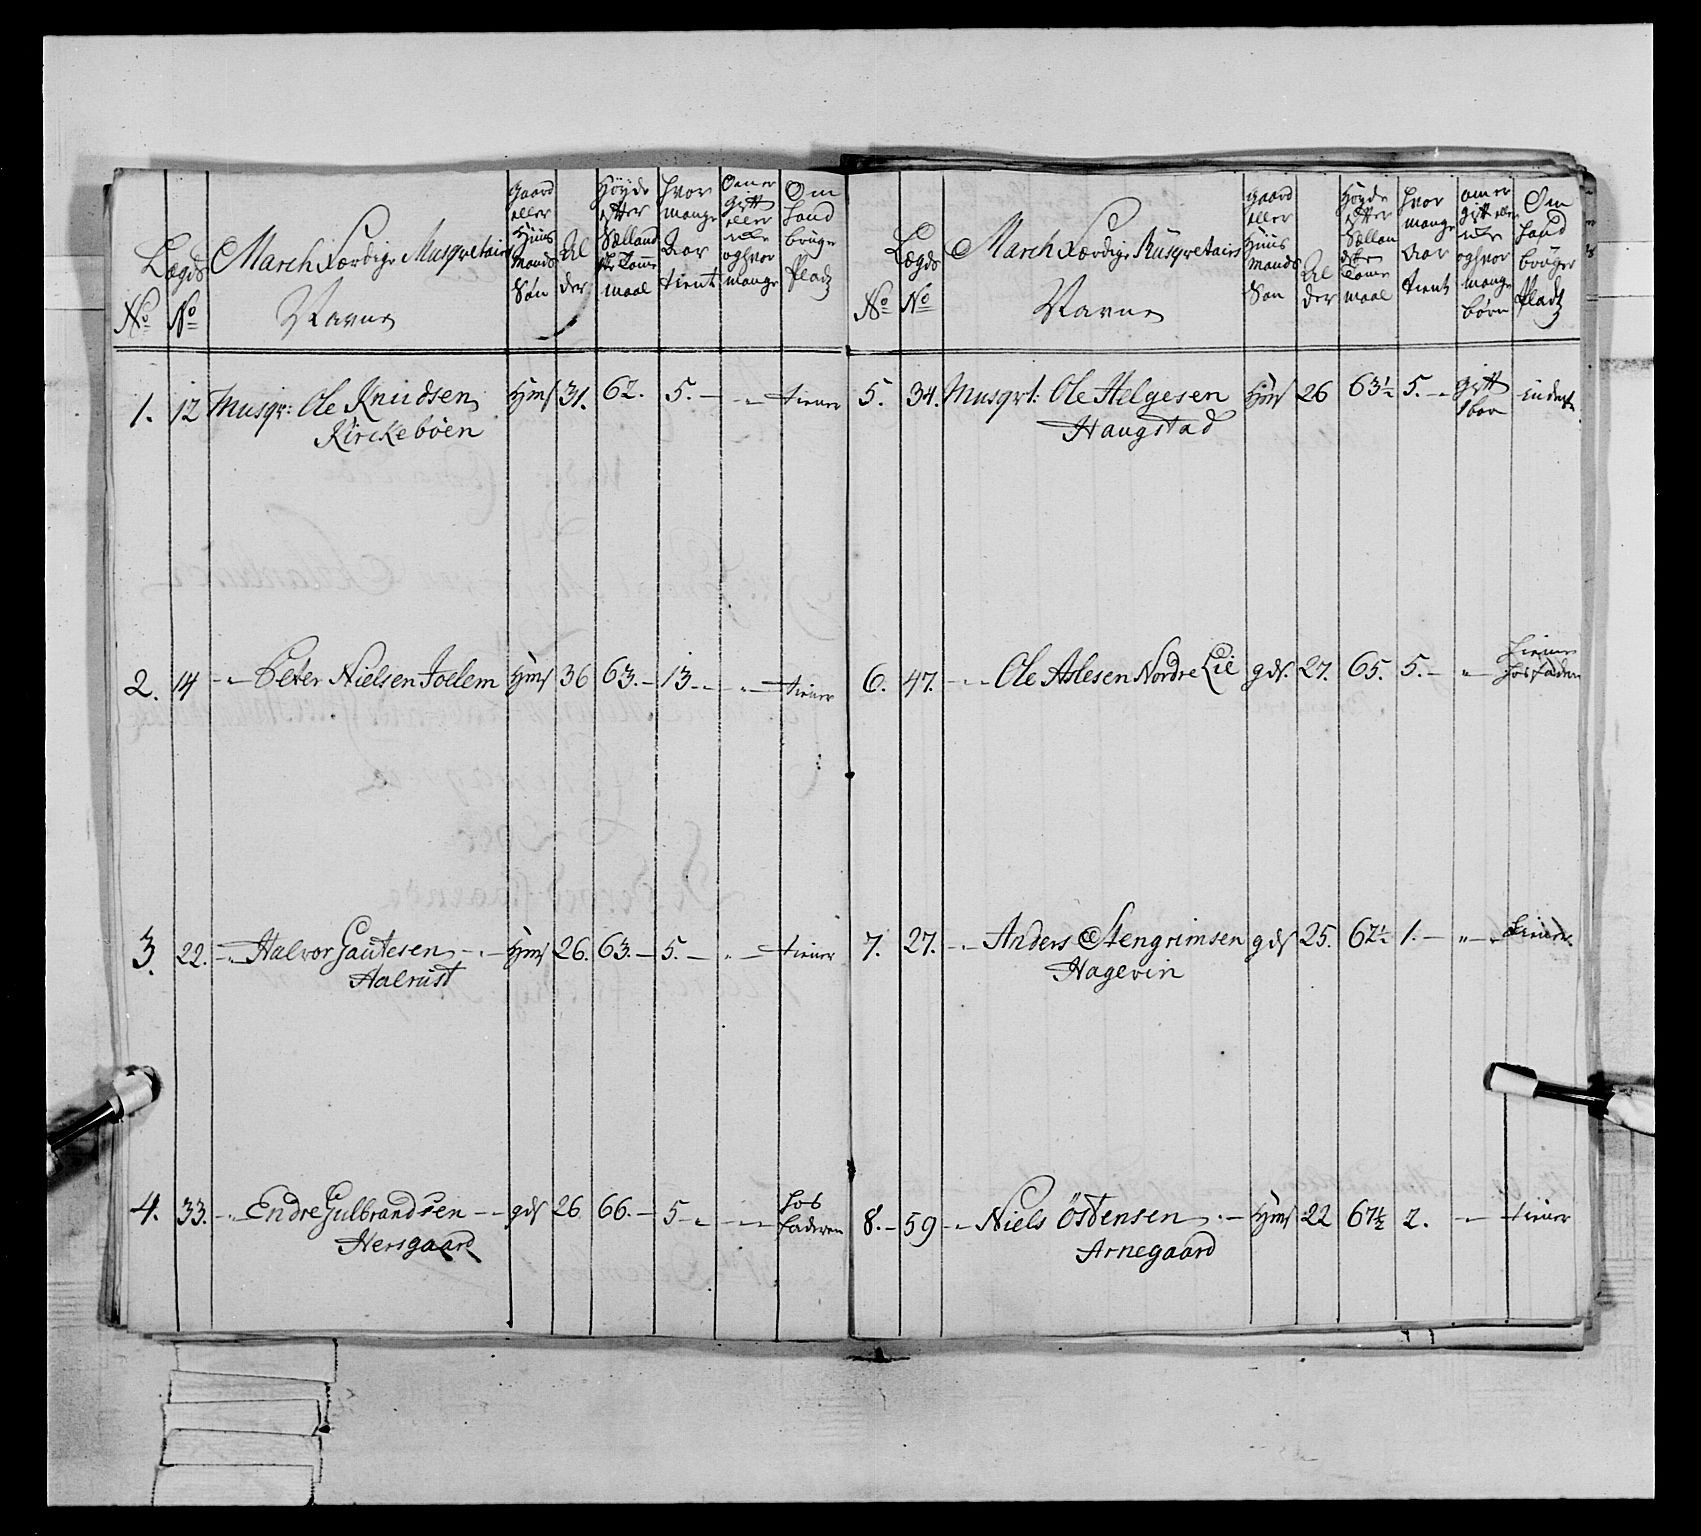 No
Lægds No
March Færdige Musqvetairs
Navne
gaard eller Huus Mands Søn
Alder
Høyde efter Sælland Tomme maal
hvor mange Aar tient
Om er gift eller og hvor mange
Om Land bruger Pladz
1. 12 Musqr: Ole Knudsen Hms 31. 62. 5. — „ — tiener
Kirckebøen
2. 14 -„- Peter Nielsen Joelem Hms 36 63. — 13 -„- „ — tiener
3. 22. -„- Halvor Gautesen -„- Hms 26. 63. — 5. — „ — tiener
Aalrust
4. 33. -„- Endre Gulbrandsen -- gds 26 66. — 5 -„- — „ — hos faderen
Hersgaard
No
Lægds No
March Færdige Musqvetairs
Navne
gaard eller Huus Mands Søn
Alder
Høyde efter Sællan Tome maal
hvor mange Aar tient
om er gift eller og hvor mange børn
Om Land bruger Pladz
5. 34. Musqrt: Ole Helgesen Hms 26 63½ 5. - gift 1 barn inderste
Haugstad
6. 47. -„- Ole Aslesen Nordre Lie gds. 27. 65. 5. — „ — tiener hos faderen
7. 27. -„- Anders Stengrimsen gds 25. 62½ 1. — „ — tiener
Hagevin
8. — 59 -„- Niels Östensen -„- Hms 22 67½ 2. -„- tiener
Arnegaard